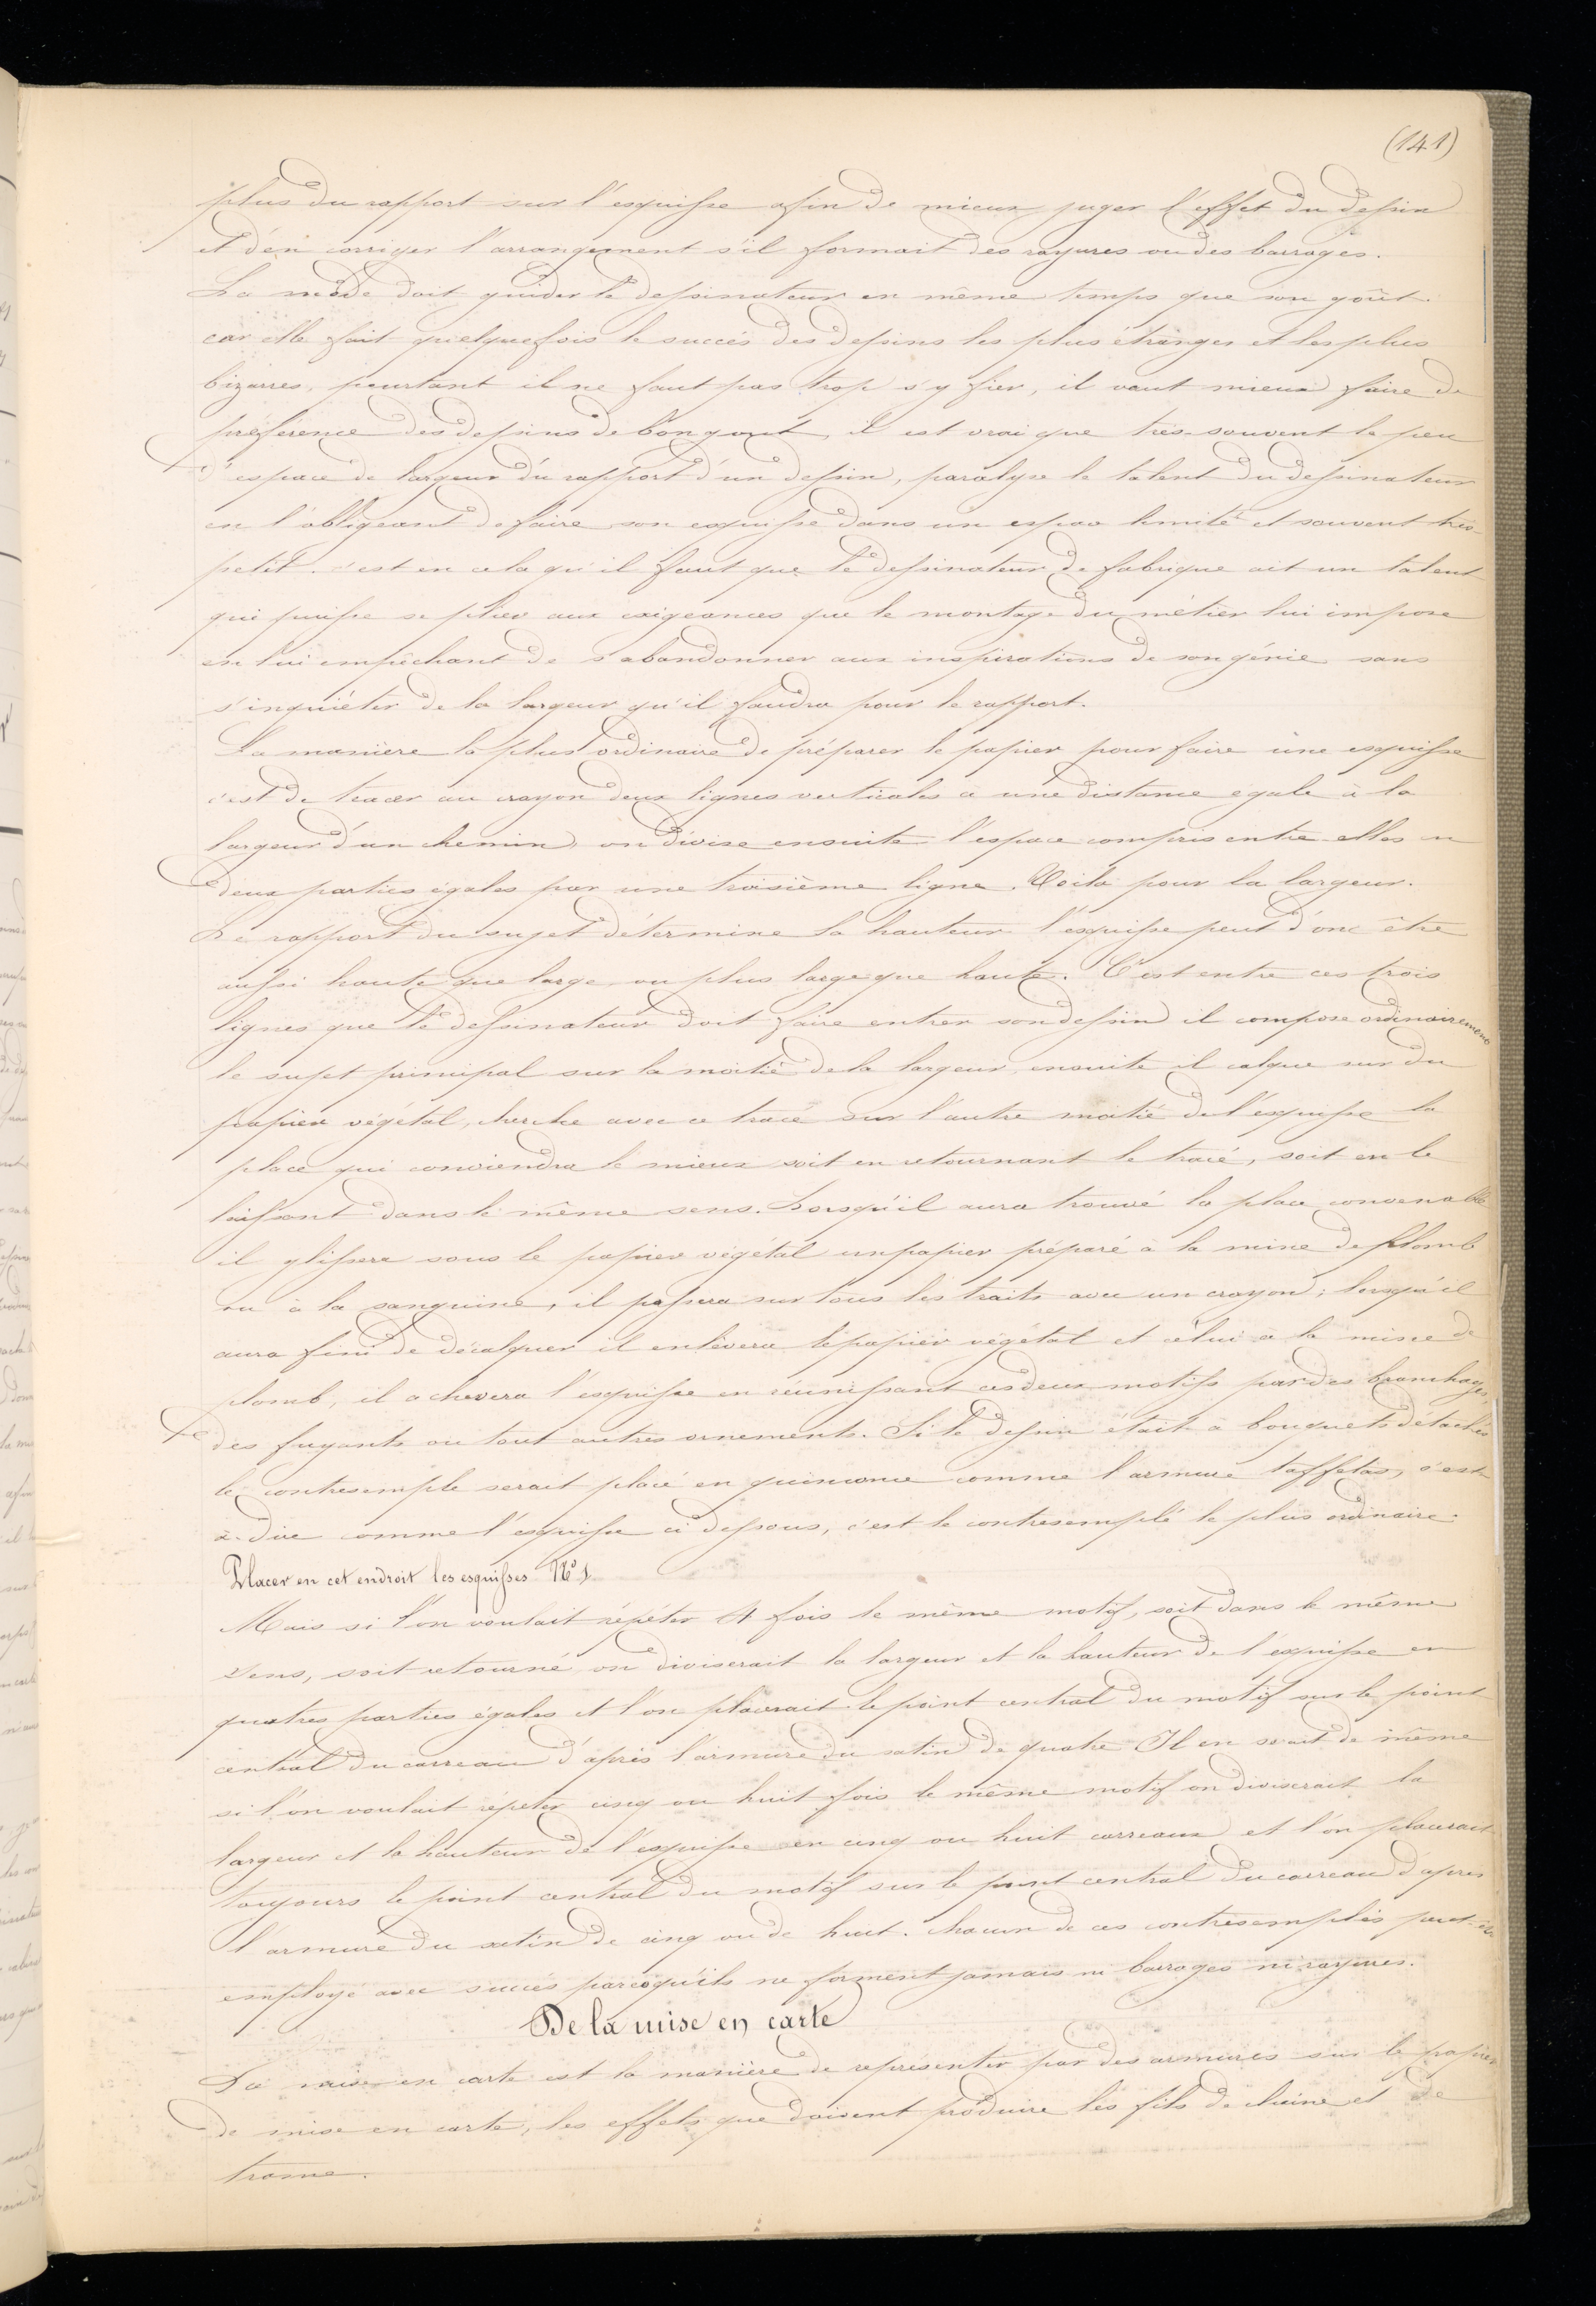 (141)
plus du rapport sur l'esquisse afin de mieux juger l'effet du dessin
et d'en corriger l'arrangement s'il formait des rayures ou des barrages.
La mode doit guider le dessinateur en même temps que son goût.
car elle fait quelquefois le succès des dessins les plus étranges et les plus
bizarres, pourtant il ne faut pas trop s'y fier, il vaut mieux faire de
préférence des dessins de bon gout, il est vrai que très-souvent le peu
d'espace de largeur du rapport d'un dessin, paralyse le talent du dessinateur
en l'obligeant de faire son esquisse dans un espace limité et souvent très-
petit. c'est en cela qu'il faut que le dessinateur de fabrique ait un talent
qui puisse se plier aux exigeances que le montage du métier lui impose
en lui empêchant de s'abandonner aux inspirations de son génie sans
s'inquiéter de la largeur qu'il faudra pour le rapport.
La manière la plus ordinaire de préparer le papier pour faire une esquisse
c'est de tracer au crayon deux lignes verticales a une distance egale à la
largeur d'un chemin, on divise ensuite l'espace compris entre elles en
deux parties égales par une troisième ligne. Voila pour la largeur.
Le rapport du sujet détermine la hauteur l'esquisse peut donc être
aussi haute que large, ou plus large que haute. C'est entre ces trois
lignes que le dessinateur doit faire entrer son dessin il compose ordinairement
le sujet principal sur la moitié de la largeur, ensuite il calque sur du
papier végétal, cherche avec ce tracé sur l'autre moitié de l'esquisse la
place qui conviendra le mieux soit en retournant le tracé, soit en le
laissant dans le même sens. Lorsqu'il aura trouvé la place convenable
il glissera sous le papier végétal un papier préparé à la mine de plomb
ou à la sanguine, il passera sur tous les traits avec un crayon; lorsqu'il
aura fini de décalquer il enlèvera le papier végétal et celui a la mine de
plomb, il achevera l'esquisse en réunissant ces deux motifs par des branchages,
des fuyants ou tout autres ornements. Si le dessin était a bouquets détachés
le contresemple serait placé en quinconce comme l'armure taffetas, c'est-
à-dire comme l'esquisse ci dessous, c'est le contresemplé le plus ordinaire.
Placer en cet endroit les esquisses N° 1
Mais si l'on voulait répéter 4 fois le même motif, soit dans le même
sens, soit retourné, on diviserait la largeur et la hauteur de l'esquisse en
quatres parties égales et l'on placerait le point central du motif sur le point
central du carreau d'après l'armure du satin de quatre Il en serait de même
si l'on voulait repeter cinq ou huit fois le même motif on diviserait la
largeur et la hauteur de l'esquisse en cinq ou huit carreaux et l'on placerait
toujours le point central du motif sur le point central du carreau d'apres
l'armure du satin de cinq ou de huit. chacun de ces contresemplés peut-être
employé avec succès parcequ'ils ne forment jamais ni barrages ni rayures.
De la mise en carte
La mise en carte est la manière de représenter par des armures sur le papier
de mise en carte, les effets que doivent produire les fils de chaine et de
trame.